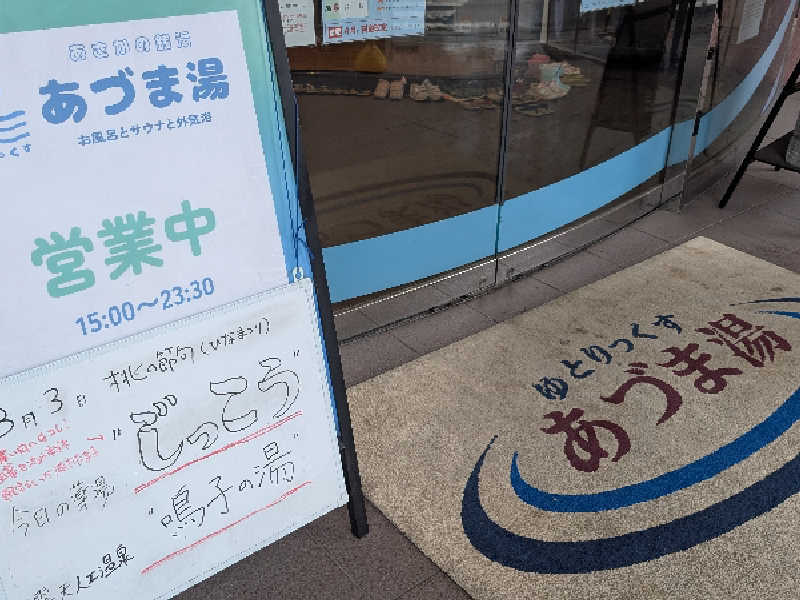 あさかの銭湯
あづま湯
お風呂とサウナと外気浴
営業中
15:00〜23:30
3月3日 桃の節句(ひなまつり)
"じっこう"
今日の薬湯
"鳴子の湯"
人工温泉
ゆとりっくす
あづま湯